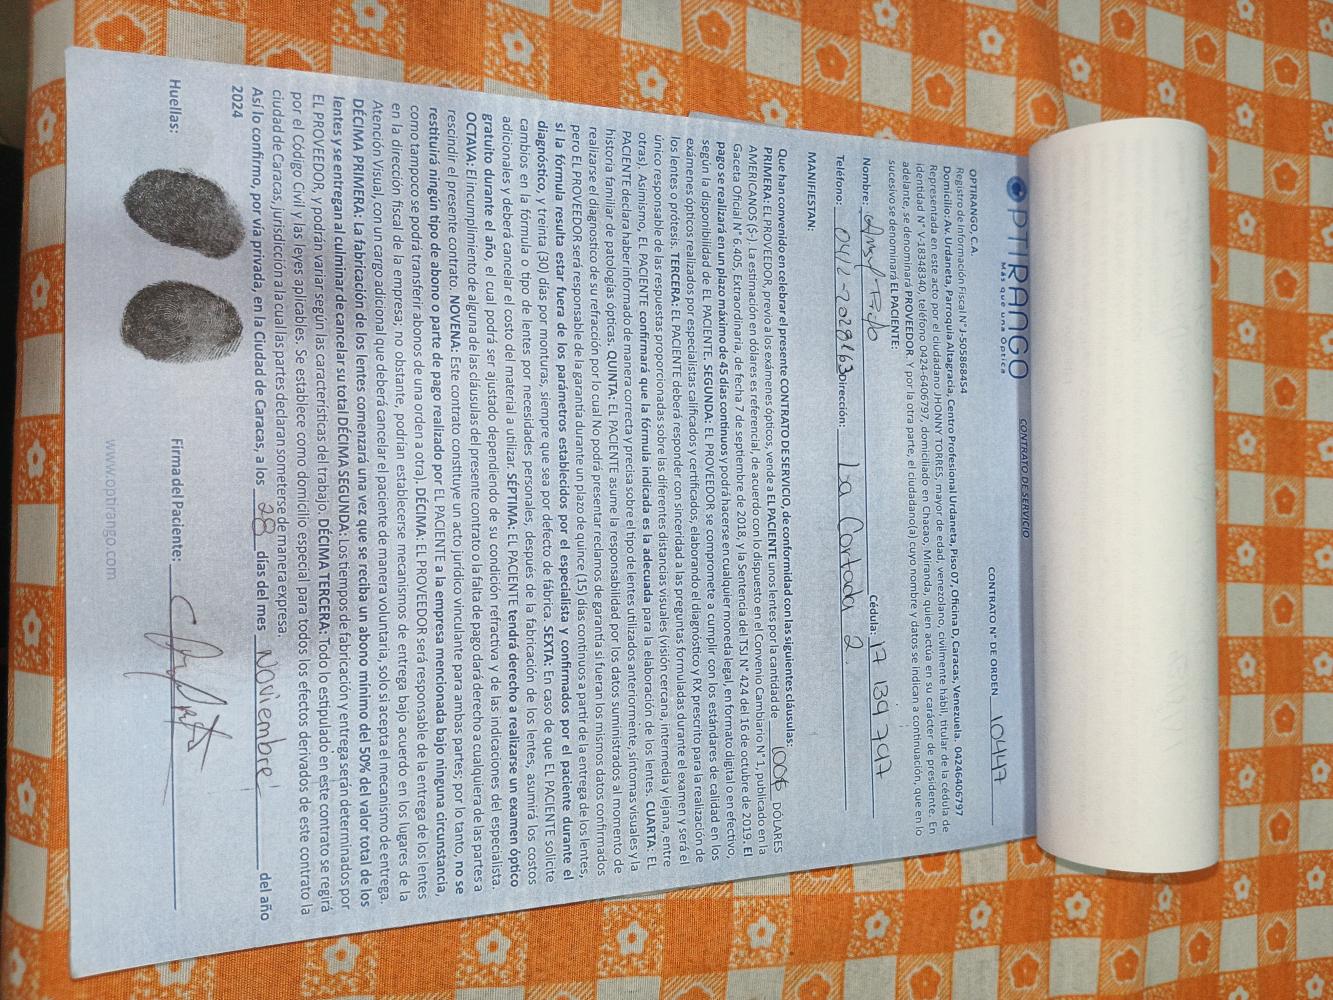 OPTIRANGO
Más que una Óptica
CONTRATO DE SERVICIO
CONTRATO N° DE ORDEN 10447
OPTIRANGO, C.A.
Registro de Información Fiscal N° J-505868454
Domicilio: Av. Urdaneta, Parroquia Altagracia, Centro Profesional Urdaneta, Piso 07, Oficina D, Caracas, Venezuela. 04246406797
Representada en este acto por el ciudadano JHONNY TORRES, mayor de edad, venezolano, civilmente hábil, titular de la cédula de
identidad N° V-18348340, teléfono 0424-6406797, domiciliado en Chacao, Miranda, quien actúa en su carácter de presidente. En
adelante, se denominará PROVEEDOR. Y por la otra parte, el ciudadano(a) cuyo nombre y datos se indican a continuación, que en lo
sucesivo se denominará EL PACIENTE:
Nombre: Cédula: 17 139 747
Teléfono: 0412-7029163 Dirección: La Cortada 2
MANIFIESTAN:
Que han convenido en celebrar el presente CONTRATO DE SERVICIO, de conformidad con las siguientes cláusulas:
PRIMERA: EL PROVEEDOR, previo a los exámenes ópticos, vende a EL PACIENTE unos lentes por la cantidad de 100$ DÓLARES
AMERICANOS ($-). La estimación en dólares es referencial, de acuerdo con lo dispuesto en el Convenio Cambiario N° 1, publicado en la
Gaceta Oficial N° 6.405, Extraordinaria, de fecha 7 de septiembre de 2018, y la Sentencia del TSJ N° 424 del 16 de octubre de 2019. El
pago se realizará en un plazo máximo de 45 días continuos y podrá hacerse en cualquier moneda legal, en formato digital o en efectivo,
según la disponibilidad de EL PACIENTE. SEGUNDA: EL PROVEEDOR se compromete a cumplir con los estándares de calidad en los
exámenes ópticos realizados por especialistas calificados y certificados, elaborando el diagnóstico y RX prescrito para la realización de
los lentes o prótesis. TERCERA: EL PACIENTE deberá responder con sinceridad a las preguntas formuladas durante el examen y será el
único responsable de las respuestas proporcionadas sobre las diferentes distancias visuales (visión cercana, intermedia y lejana, entre
otras). Asimismo, EL PACIENTE confirmará que la fórmula indicada es la adecuada para la elaboración de los lentes. CUARTA: EL
PACIENTE declara haber informado de manera correcta y precisa sobre el tipo de lentes utilizados anteriormente, síntomas visuales y la
historia familiar de patologías ópticas. QUINTA: EL PACIENTE asume la responsabilidad por los datos suministrados al momento de
realizarse el diagnostico de su refracción por lo cual No podrá presentar reclamos de garantía si fueran los mismos datos confirmados
pero EL PROVEEDOR será responsable de la garantía durante un plazo de quince (15) días continuos a partir de la entrega de los lentes,
si la fórmula resulta estar fuera de los parámetros establecidos por el especialista y confirmados por el paciente durante el
diagnóstico, y treinta (30) días por monturas, siempre que sea por defecto de fábrica. SEXTA: En caso de que EL PACIENTE solicite
cambios en la fórmula o tipo de lentes por necesidades personales, después de la fabricación de los lentes, asumirá los costos
adicionales y deberá cancelar el costo del material a utilizar. SÉPTIMA: EL PACIENTE tendrá derecho a realizarse un examen óptico
gratuito durante el año, el cual podrá ser ajustado dependiendo de su condición refractiva y de las indicaciones del especialista.
OCTAVA: El incumplimiento de alguna de las cláusulas del presente contrato o la falta de pago dará derecho a cualquiera de las partes a
rescindir el presente contrato. NOVENA: Este contrato constituye un acto jurídico vinculante para ambas partes; por lo tanto, no se
restituirá ningún tipo de abono o parte de pago realizado por EL PACIENTE a la empresa mencionada bajo ninguna circunstancia,
como tampoco se podrá transferir abonos de una orden a otra). DÉCIMA: EL PROVEEDOR será responsable de la entrega de los lentes
en la dirección fiscal de la empresa; no obstante, podrían establecerse mecanismos de entrega bajo acuerdo en los lugares de la
Atención Visual, con un cargo adicional que deberá cancelar el paciente de manera voluntaria, solo si acepta el mecanismo de entrega.
DÉCIMA PRIMERA: La fabricación de los lentes comenzará una vez que se reciba un abono mínimo del 50% del valor total de los
lentes y se entregan al culminar de cancelar su total DÉCIMA SEGUNDA: Los tiempos de fabricación y entrega serán determinados por
EL PROVEEDOR, y podrán variar según las características del trabajo. DÉCIMA TERCERA: Todo lo estipulado en este contrato se regirá
por el Código Civil y las leyes aplicables. Se establece como domicilio especial para todos los efectos derivados de este contrato la
ciudad de Caracas, jurisdicción a la cual las partes declaran someterse de manera expresa.
Así lo confirmo, por vía privada, en la Ciudad de Caracas, a los 28 días del mes Noviembre del año
2024
Huellas: Firma del Paciente:
www.optirango.com